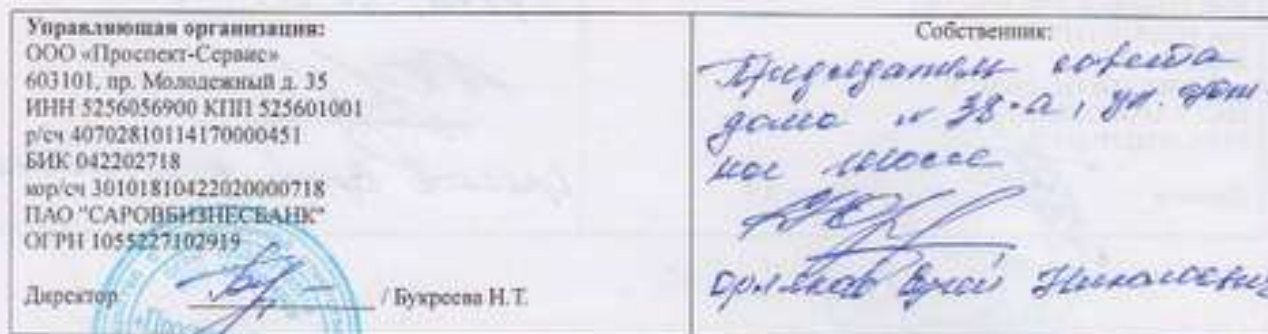 Управляющая организация:
ООО «Проспект-Сервис»
603101, пр. Молодежный д. 35
ИНН 5256056900 КПП 525601001
р/сч 40702810114170000451
БИК 042202718
кор/сч 30101810422020000718
ПАО "САРОВБИЗНЕСБАНК"
ОГРН 1055227102919
Директор / Букреева Н.Т.
Собственник:
Председатель совета
дома № 38-а, ул.
ное шоссе
Юрий Николаевич